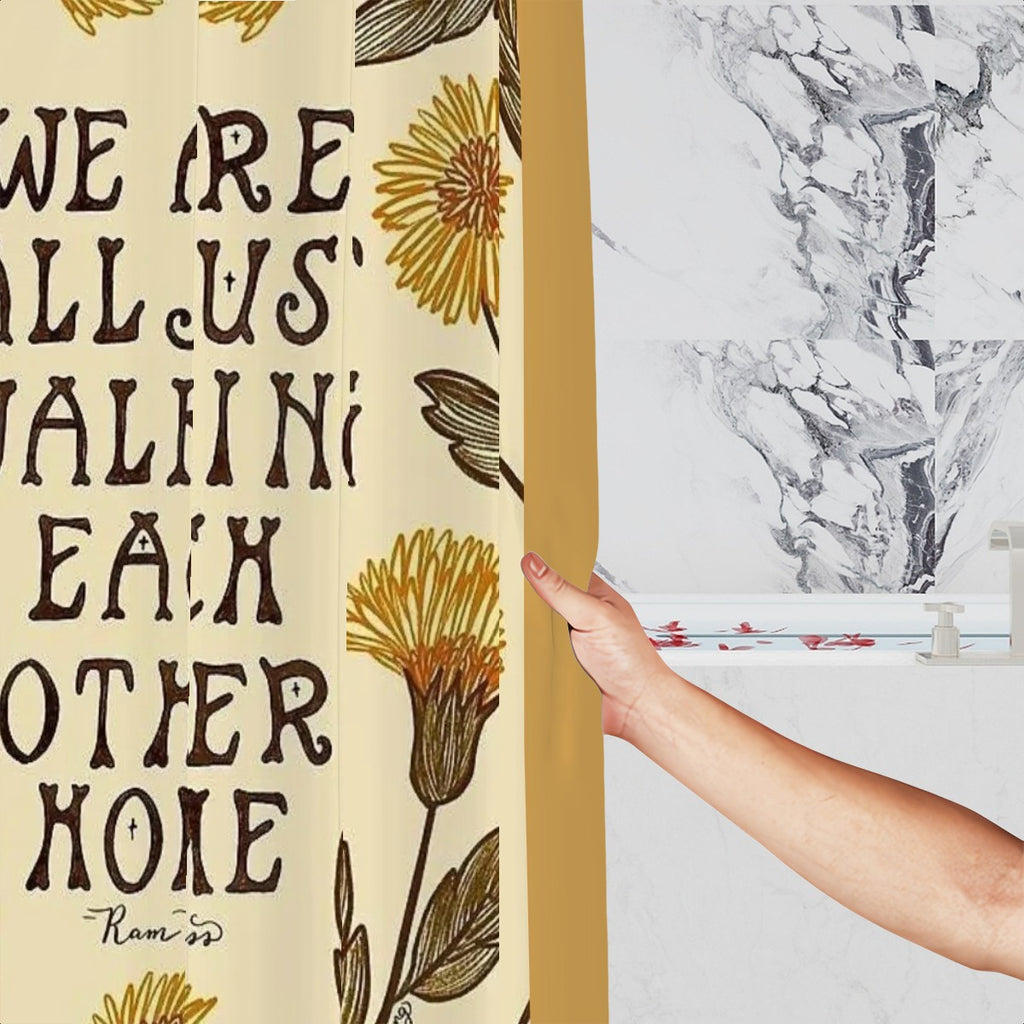 WE ARE
ALL JUST
WALKING
EACH
OTHER
HOME
-Ram ss